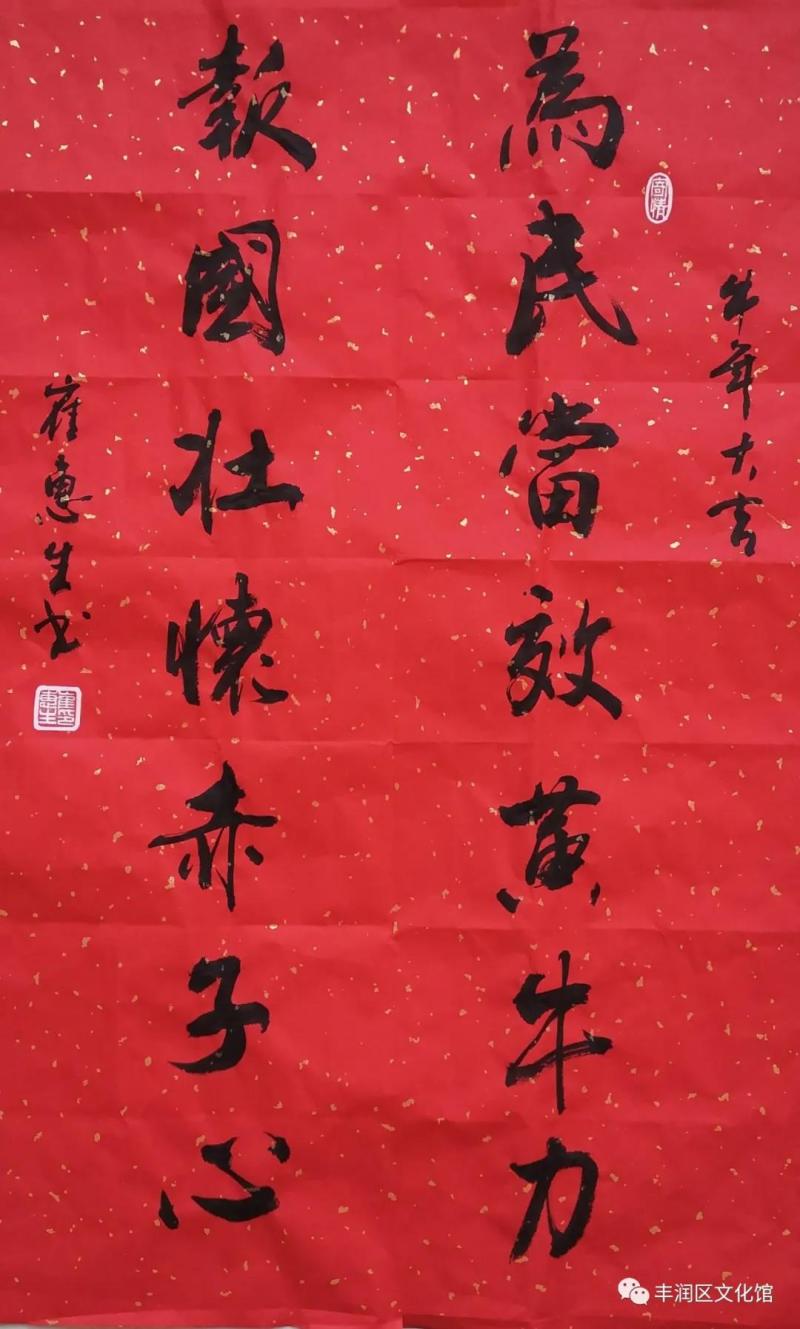 牛年大吉
為民當效黄牛力
報國壯懷赤子心
崔惠生书
丰润区文化馆